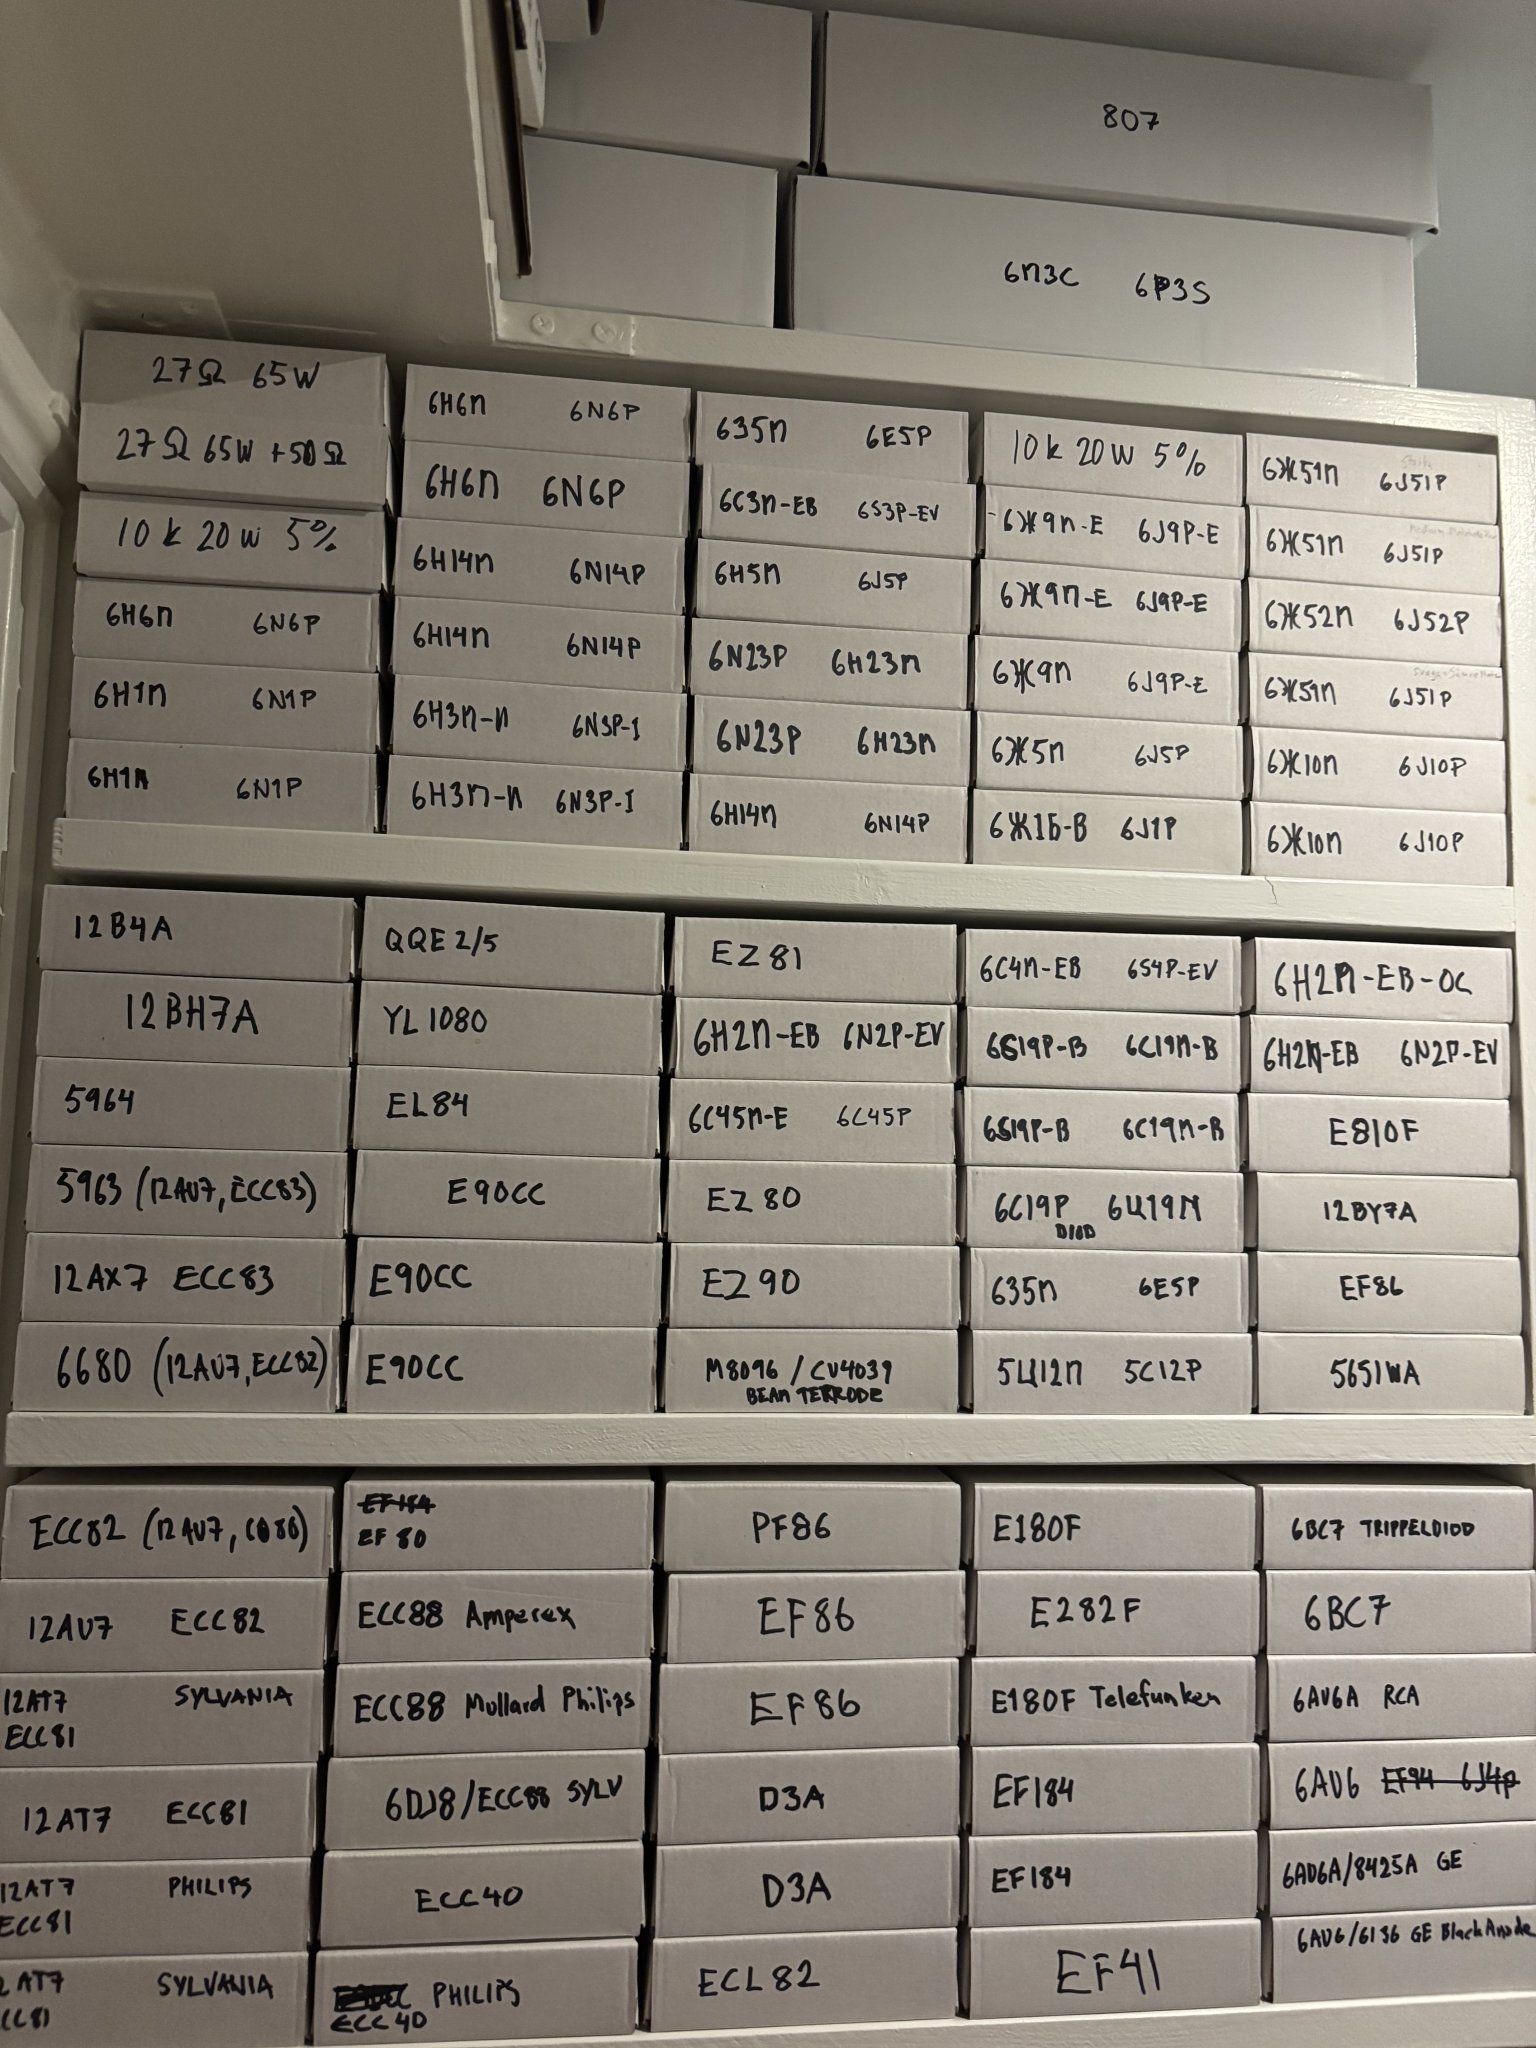 807
6П3С 6P3S
27Ω 65W
27Ω 65W +50Ω
10 k 20 W 5%
6Н6П 6N6P
6Н1П 6N1P
6Н1П 6N1P
6Н6П 6N6P
6Н6П 6N6P
6Н14П 6N14P
6Н14П 6N14P
6Н3П-И 6N3P-I
6Н3П-И 6N3P-I
6Э5П 6E5P
6С3П-ЕВ 6S3P-EV
6Н5П 6J5P
6N23P 6Н23П
6N23P 6Н23П
6Н14П 6N14P
10 k 20W 5%
6Ж9П-Е 6J9P-E
6Ж9П-Е 6J9P-E
6Ж9П 6J9P-E
6Ж5П 6J5P
6Ж1Б-В 6J1P
6Ж51П 6J51P
6Ж51П 6J51P
6Ж52П 6J52P
6Ж51П 6J51P
6Ж10П 6J10P
6Ж10П 6J10P
12B4A
12BH7A
5964
5963 (12AU7, ECC83)
12AX7 ECC83
6680 (12AU7, ECC82)
QQE 2/5
YL1080
EL84
E90CC
E90CC
E90CC
EZ 81
6Н2П-ЕВ 6N2P-EV
6С45П-Е 6C45P
EZ 80
EZ 90
M8096 / CV4039
BEAM TERRODE
6С4П-ЕВ 6S4P-EV
6S19P-B 6С19П-В
6S19P-B 6С19П-В
6C19P 6Ц19П
DIOD
6Э5П 6E5P
5Ц12П 5C12P
6Н2П-ЕВ-ОС
6Н2П-ЕВ 6N2P-EV
E810F
12BY7A
EF86
5651WA
ECC82 (12AU7,
12AU7 ECC82
12AT7 SYLVANIA
ECC81
12AT7 ECC81
12AT7 PHILIPS
ECC81
2AT7 SYLVANIA
CC81
EF184
EF 80
ECC88 Amperex
ECC88 Mullard Philips
6DJ8/ECC88 SYLV
ECC40
PHILIPS
ECC 40
PF86
EF86
EF86
D3A
D3A
ECL82
E180F
E282F
E180F Telefunken
EF184
EF184
EF41
6BC7 TRIPPELDIOD
6BC7
6AV6A RCA
6AU6 EF94 6J4P
6AU6A/8425A GE
6AU6/6136 GE Black Anode